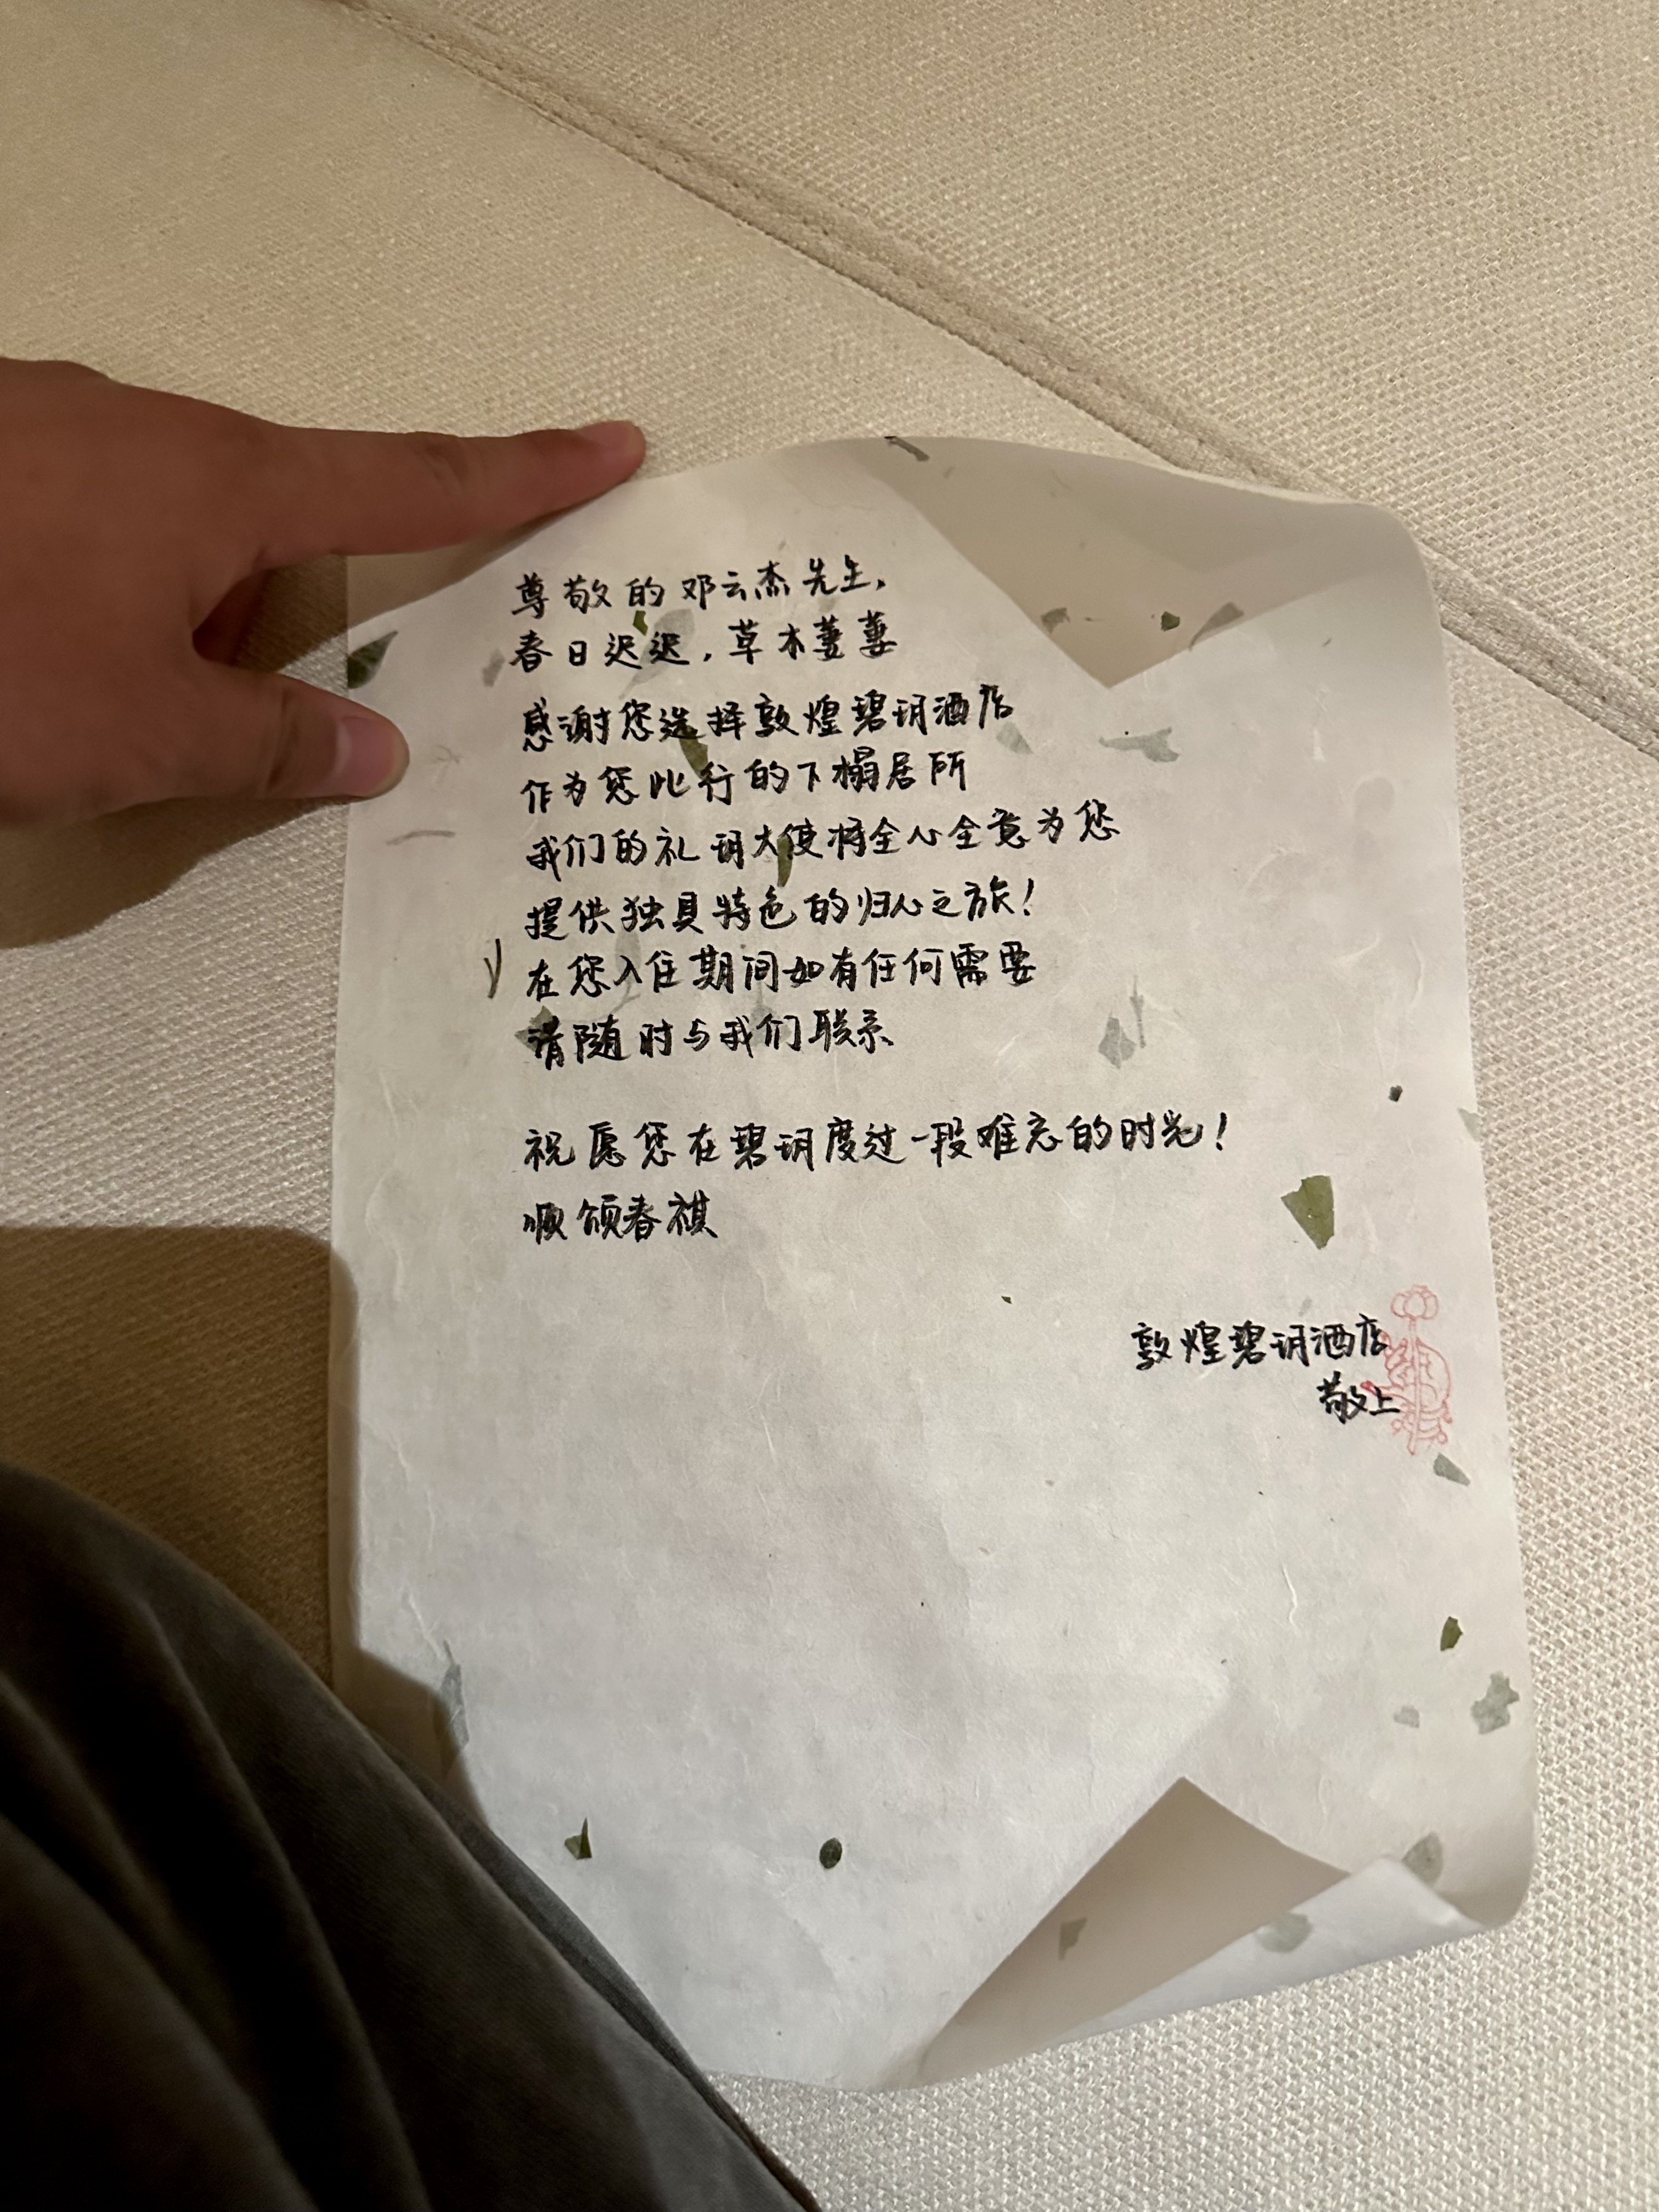 尊敬的邓云杰先生，
春日迟迟，草木萋萋
感谢您选择敦煌碧玥酒店
作为您此行的下榻居所
我们的礼玥大使将全心全意为您
提供独具特色的归心之旅！
在您入住期间如有任何需要
请随时与我们联系
祝愿您在碧玥度过一段难忘的时光！
顺颂春祺
敦煌碧玥酒店
敬上